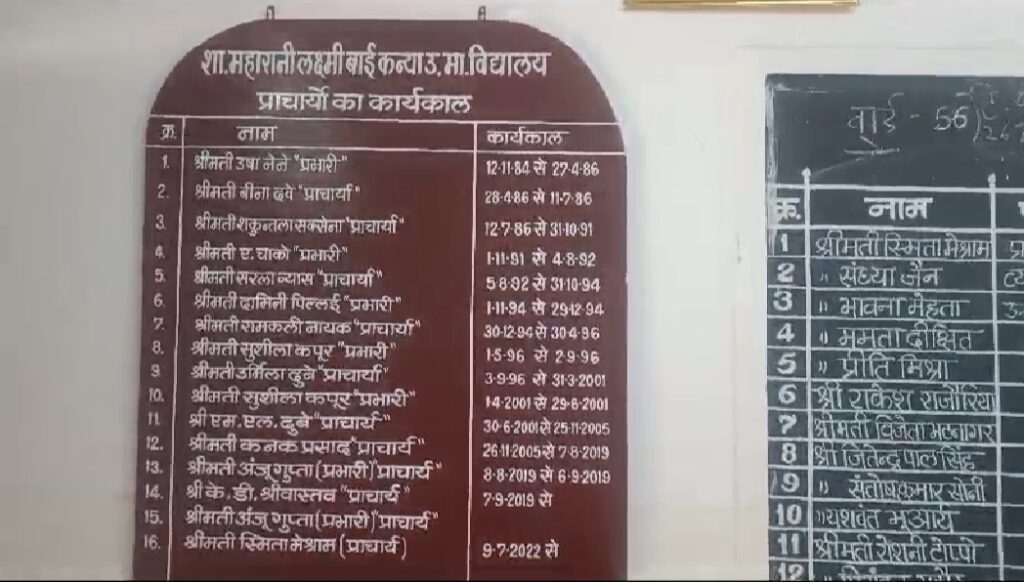 शा.महारानी लक्ष्मी बाई कन्या उ.मा.विद्यालय
प्राचार्यो का कार्यकाल
क्र. नाम कार्यकाल
1. श्रीमती उषा नेने "प्रभारी" 12-11-84 से 27-4-86
2. श्रीमती बीना दवे "प्राचार्या" 28-4-86 से 11-7-86
3. श्रीमती शकुन्तला सक्सेना "प्राचार्या" 12-7-86 से 31-10-91
4. श्रीमती ए.चाको "प्रभारी" 1-11-91 से 4-8-92
5. श्रीमती सरला व्यास "प्राचार्या" 5 8-92 से 31-10-94
6. श्रीमती दामिनी पिल्लई "प्रभारी" 1-11-94 से 29-12-94
7. श्रीमती रामकली नायक "प्राचार्या" 30-12-94 से 30-4-96
8. श्रीमती सुशीला कपूर "प्रभारी" 1-5-96 से 2-9-96
9. श्रीमती उर्मिला दुबे "प्राचार्या" 3-9-96 से 31-3-2001
10. श्रीमती सुशीला कपूर "प्रभारी" 1-4-2001 से 29-6-2001
11. श्री एम.एल.दुबे "प्राचार्य" 30-6-2001 से 25-11-2005
12. श्रीमती कनक प्रसाद "प्राचार्य" 26-11-2005 से 7-8-2019
13. श्रीमती अंजू गुप्ता (प्रभारी) "प्राचार्य" 8-8-2019 से 6-9-2019
14. श्री के.डी.श्रीवास्तव "प्राचार्य" 7-9-2019 से
15. श्रीमती अंजू गुप्ता (प्रभारी) "प्राचार्य"
16. श्रीमती स्मिता मेश्राम (प्राचार्य) 9-7-2022 से
वार्ड - 56
क्र. नाम
1 श्रीमती स्मिता मेश्राम
2 " संध्या जैन
3 " भावना मेहता
4 " ममता दीक्षित
5 " प्रीति मिश्रा
6 श्री राकेश राजौरिया
7 श्रीमती विजेता भटनागर
8 श्री जितेन्द्रपाल सिंह
9 " संतोष कुमार सोनी
10 " यशवंत भूआर्य
11 श्रीमती रोशनी टोप्पो
12